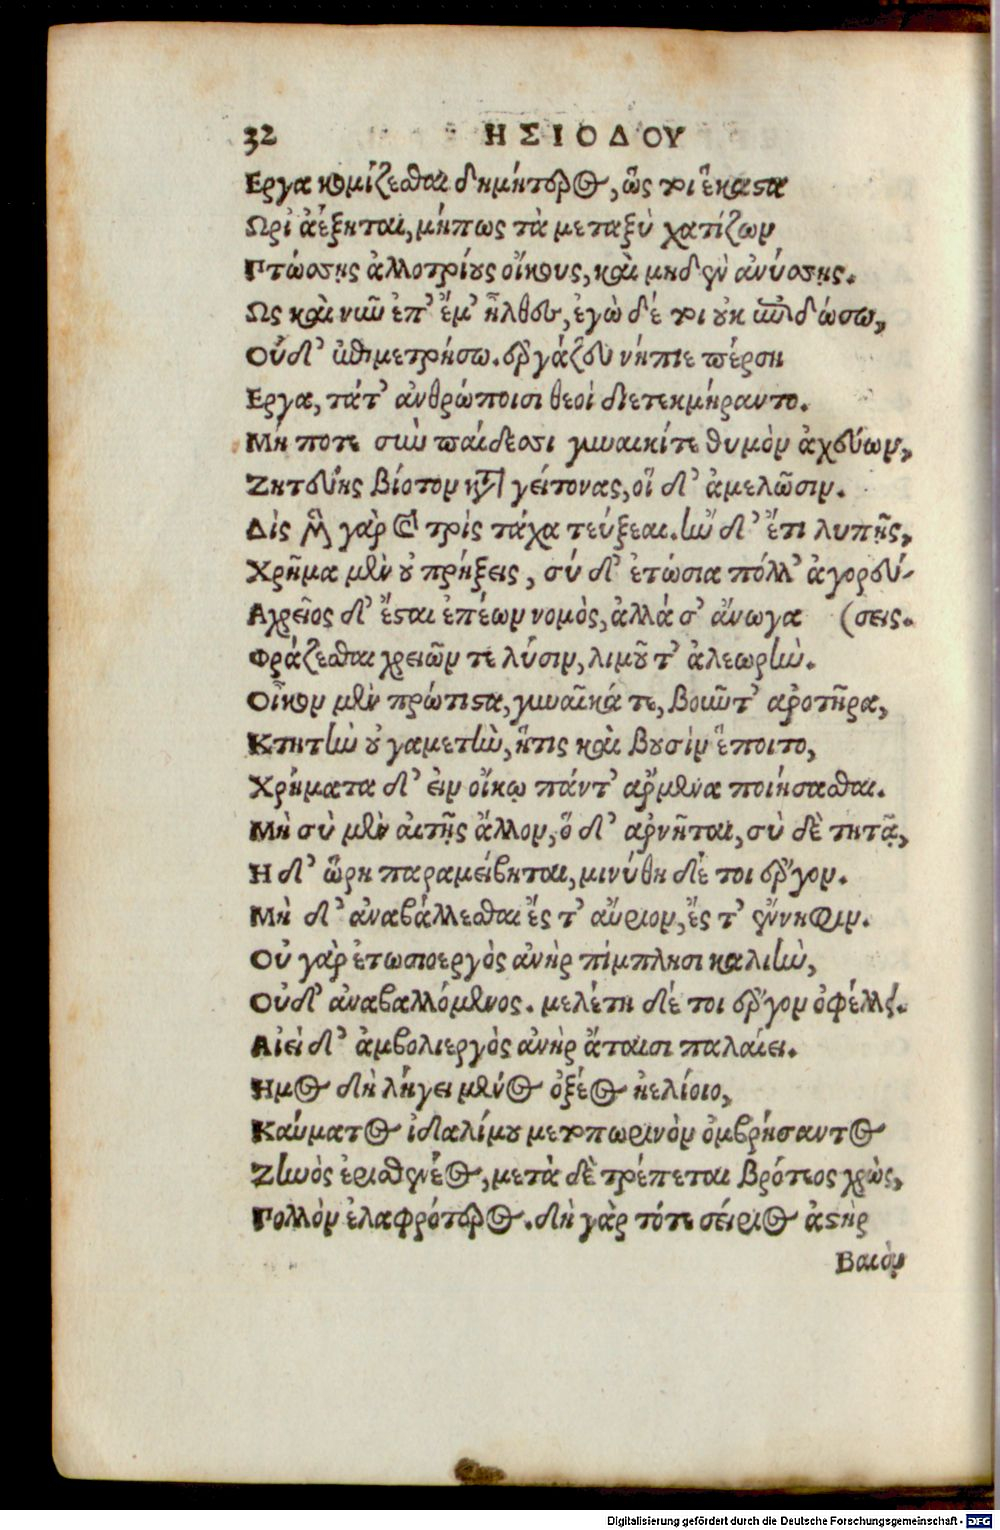 32 ΗΣΙΟΔΟΥ
Εργα κομίζεσθαι δημήτερος, ὥς τοι ἕκαστα
Ωρι' ἀέξηται, μήπως τὰ μεταξὺ χατίζων
Πτώσσῃς ἀλλοτρίους οἴκους, καὶ μηδὲν ἀνύσσῃς.
Ως καὶ νῦν ἐπ' ἔμ' ἦλθες, ἐγὼ δέ τοι οὐκ ἐπιδώσω,
Οὐδ' ἐπιμετρήσω. ἐργάζευ νήπιε πέρση
Εργα, τάτ' ἀνθρώποισι θεοὶ διετεκμήραντο.
Μή ποτε σὺν παίδεσσι γυναικίτε θυμὸν ἀχεύων,
Ζητεύῃς βίοτον κατὰ γείτονας, οἳ δ' ἀμελῶσιν.
Δὶς μὲν γὰρ καὶ τρὶς τάχα τεύξεαι. ἢν δ' ἔτι λυπῇς,
Χρῆμα μὲν οὐ πρήξεις, σύ δ' ἐτώσια πόλλ' ἀγορεύ-
Αχρεῖος δ' ἔσται ἐπέων νομὸς, ἀλλά σ' ἄνωγα (σεις.
Φράζεσθαι χρειῶν τε λύσιν, λιμοῦ τ' ἀλεωρήν.
Οἶκον μὲν πρώτιστα, γυναῖκά τε, βοῦν τ' ἀροτῆρα,
Κτητὴν οὐ γαμετὴν, ἥτις καὶ βουσὶν ἕποιτο,
Χρήματα δ' ειν οἴκῳ πάντ' ἄρμενα ποιήσασθαι.
Μὴ σὺ μὲν αἰτῇς ἄλλον, ὁ δ' ἀρνῆται, σὺ δὲ τητᾷ,
Η δ' ὥρη παραμείβηται, μινύθη δέ τοι ἔργον.
Μὴ δ' ἀναβάλλεσθαι ἔς τ' αὔριον, ἔς τ' ἔννηφιν.
Οὐ γὰρ ἐτωσιοεργὸς ἀνὴρ πίμπλησι καλιὴν,
Οὐδ' ἀναβαλλόμενος. μελέτη δέ τοι ἔργον ὀφέλλει.
Αἰεὶ δ' ἀμβολιεργὸς ἀνὴρ ἄταισι παλαίει.
Ημος δὴ λήγει μένος ὀξέος ἠελίοιο,
Καύματος ἰδαλίμου μετοπωρινὸν ὀμβρήσαντος
Ζηνὸς ἐρισθενέος, μετὰ δὲ τρέπεται βρότεος χρὼς,
Πολλὸν ἐλαφρότερος. δὴ γὰρ τότε σείριος ἀστὴρ
Βαιὸν
Digitalisierung gefördert durch die Deutsche Forschungsgemeinschaft - DFG